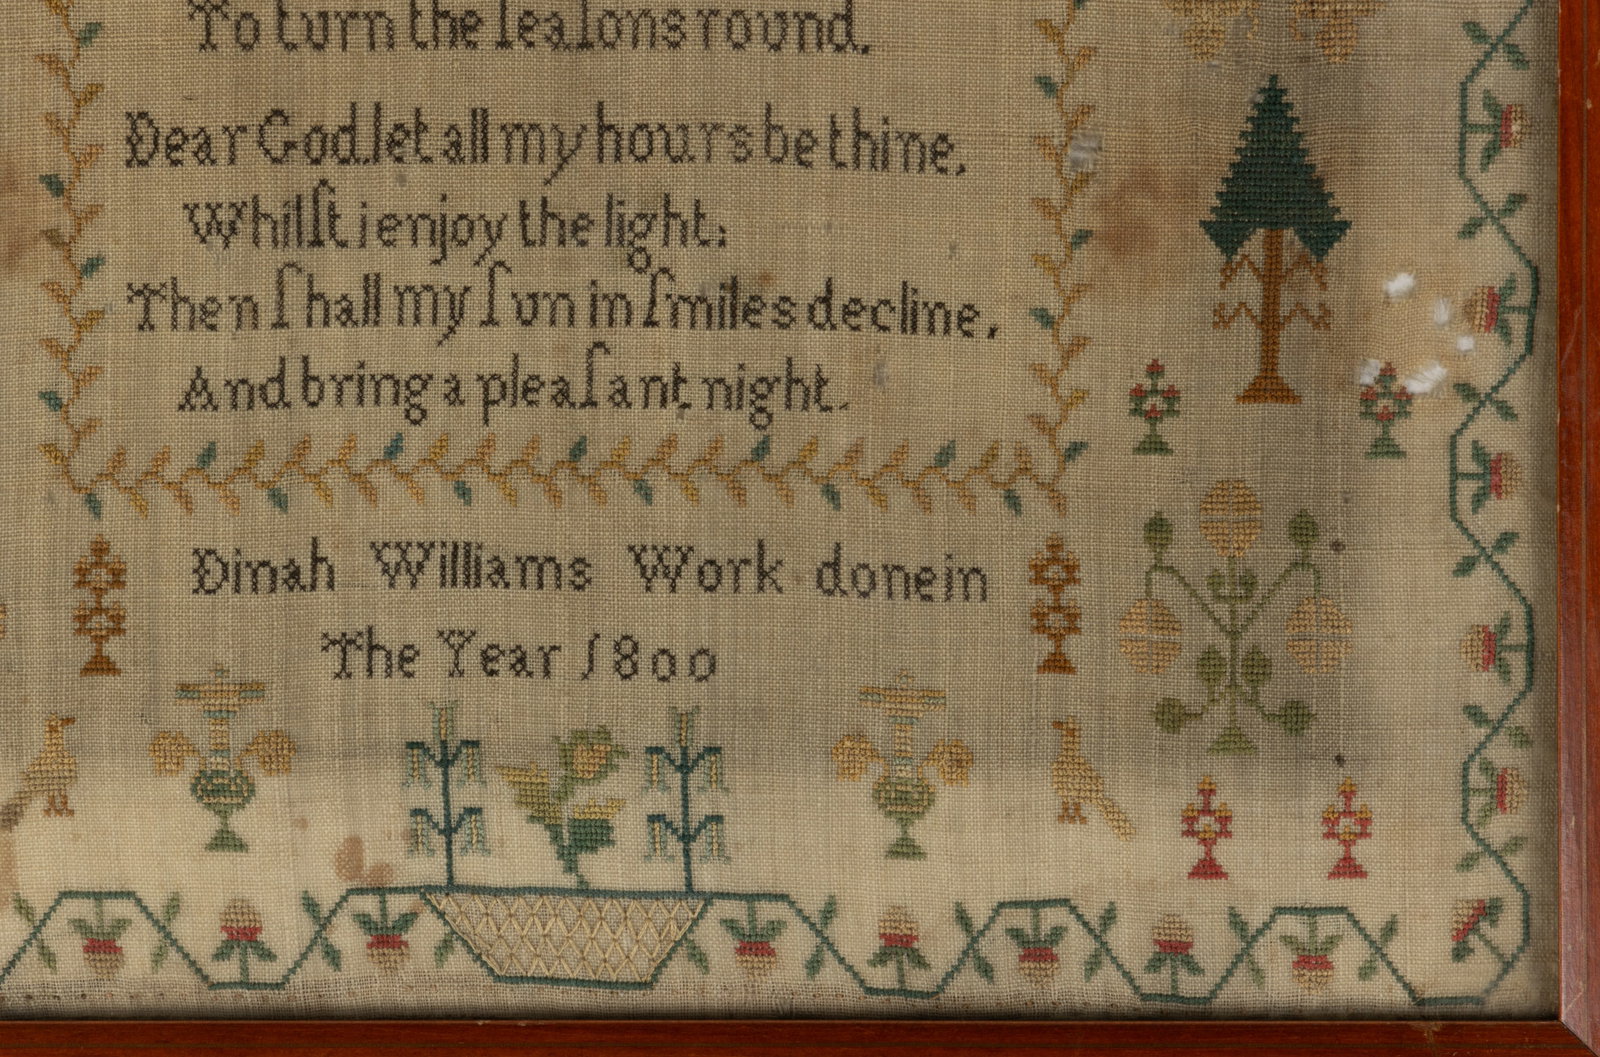 To turn the ſeaſons round.
Dear God let all my hours be thine,
Whilſt i enjoy the light;
Then ſhall my ſun in ſmiles decline,
And bring a pleaſant night.
Dinah Williams Work donein
The Year 1800